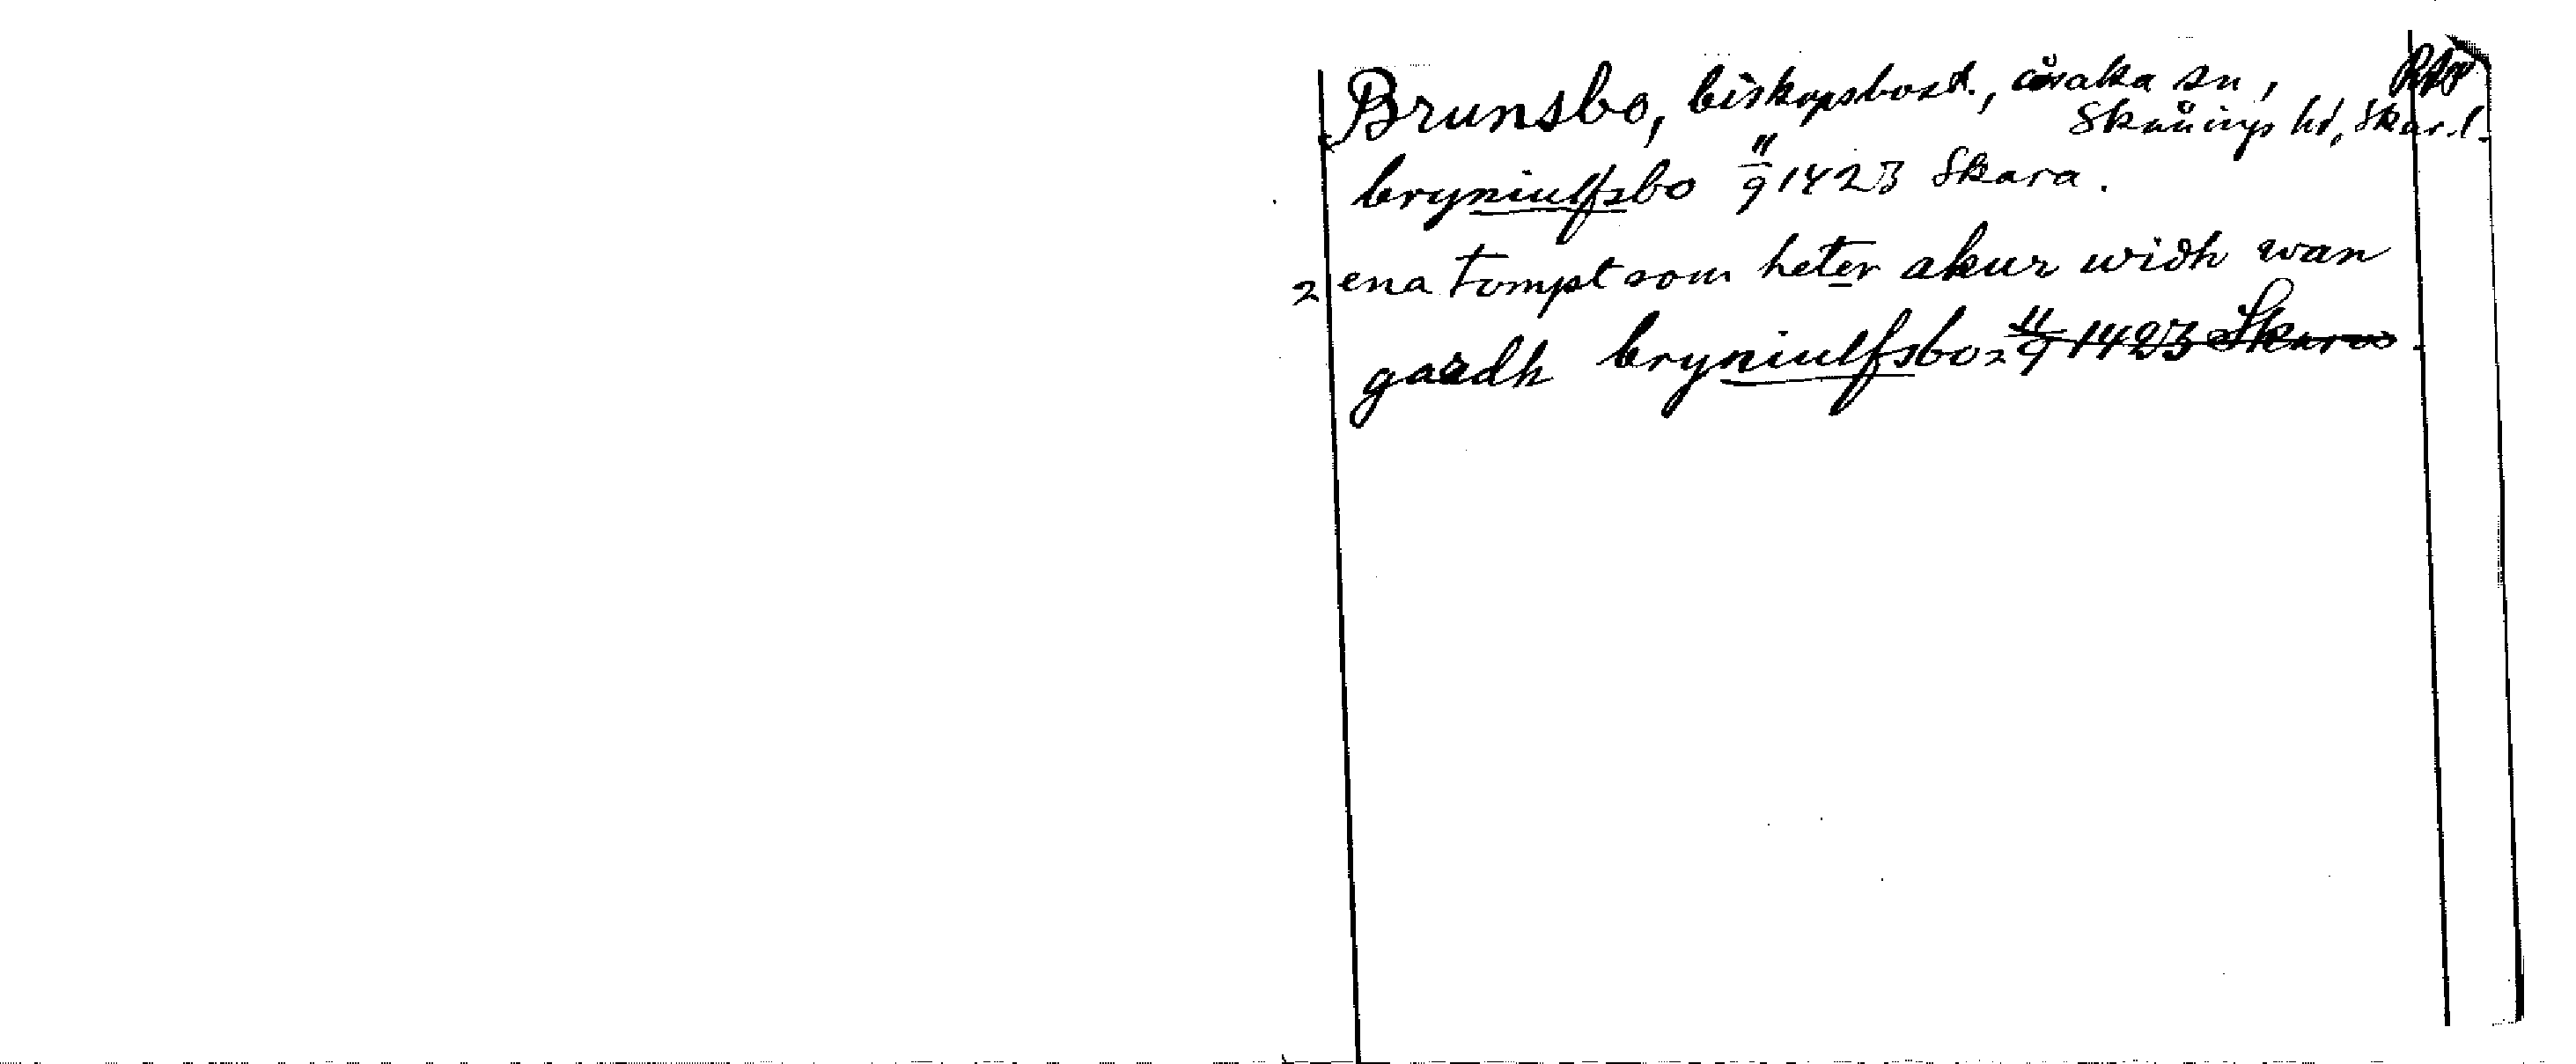 Brunsbo, biskopsbost., Åsaka sn, RAp
Skånings hd, Skar.l.
bryniulfsbo 11/9 1423 Skara.
2 ena tompt som heter akur widh wan
gardh bryniulfsbo 2 11/9 1423 Skara.